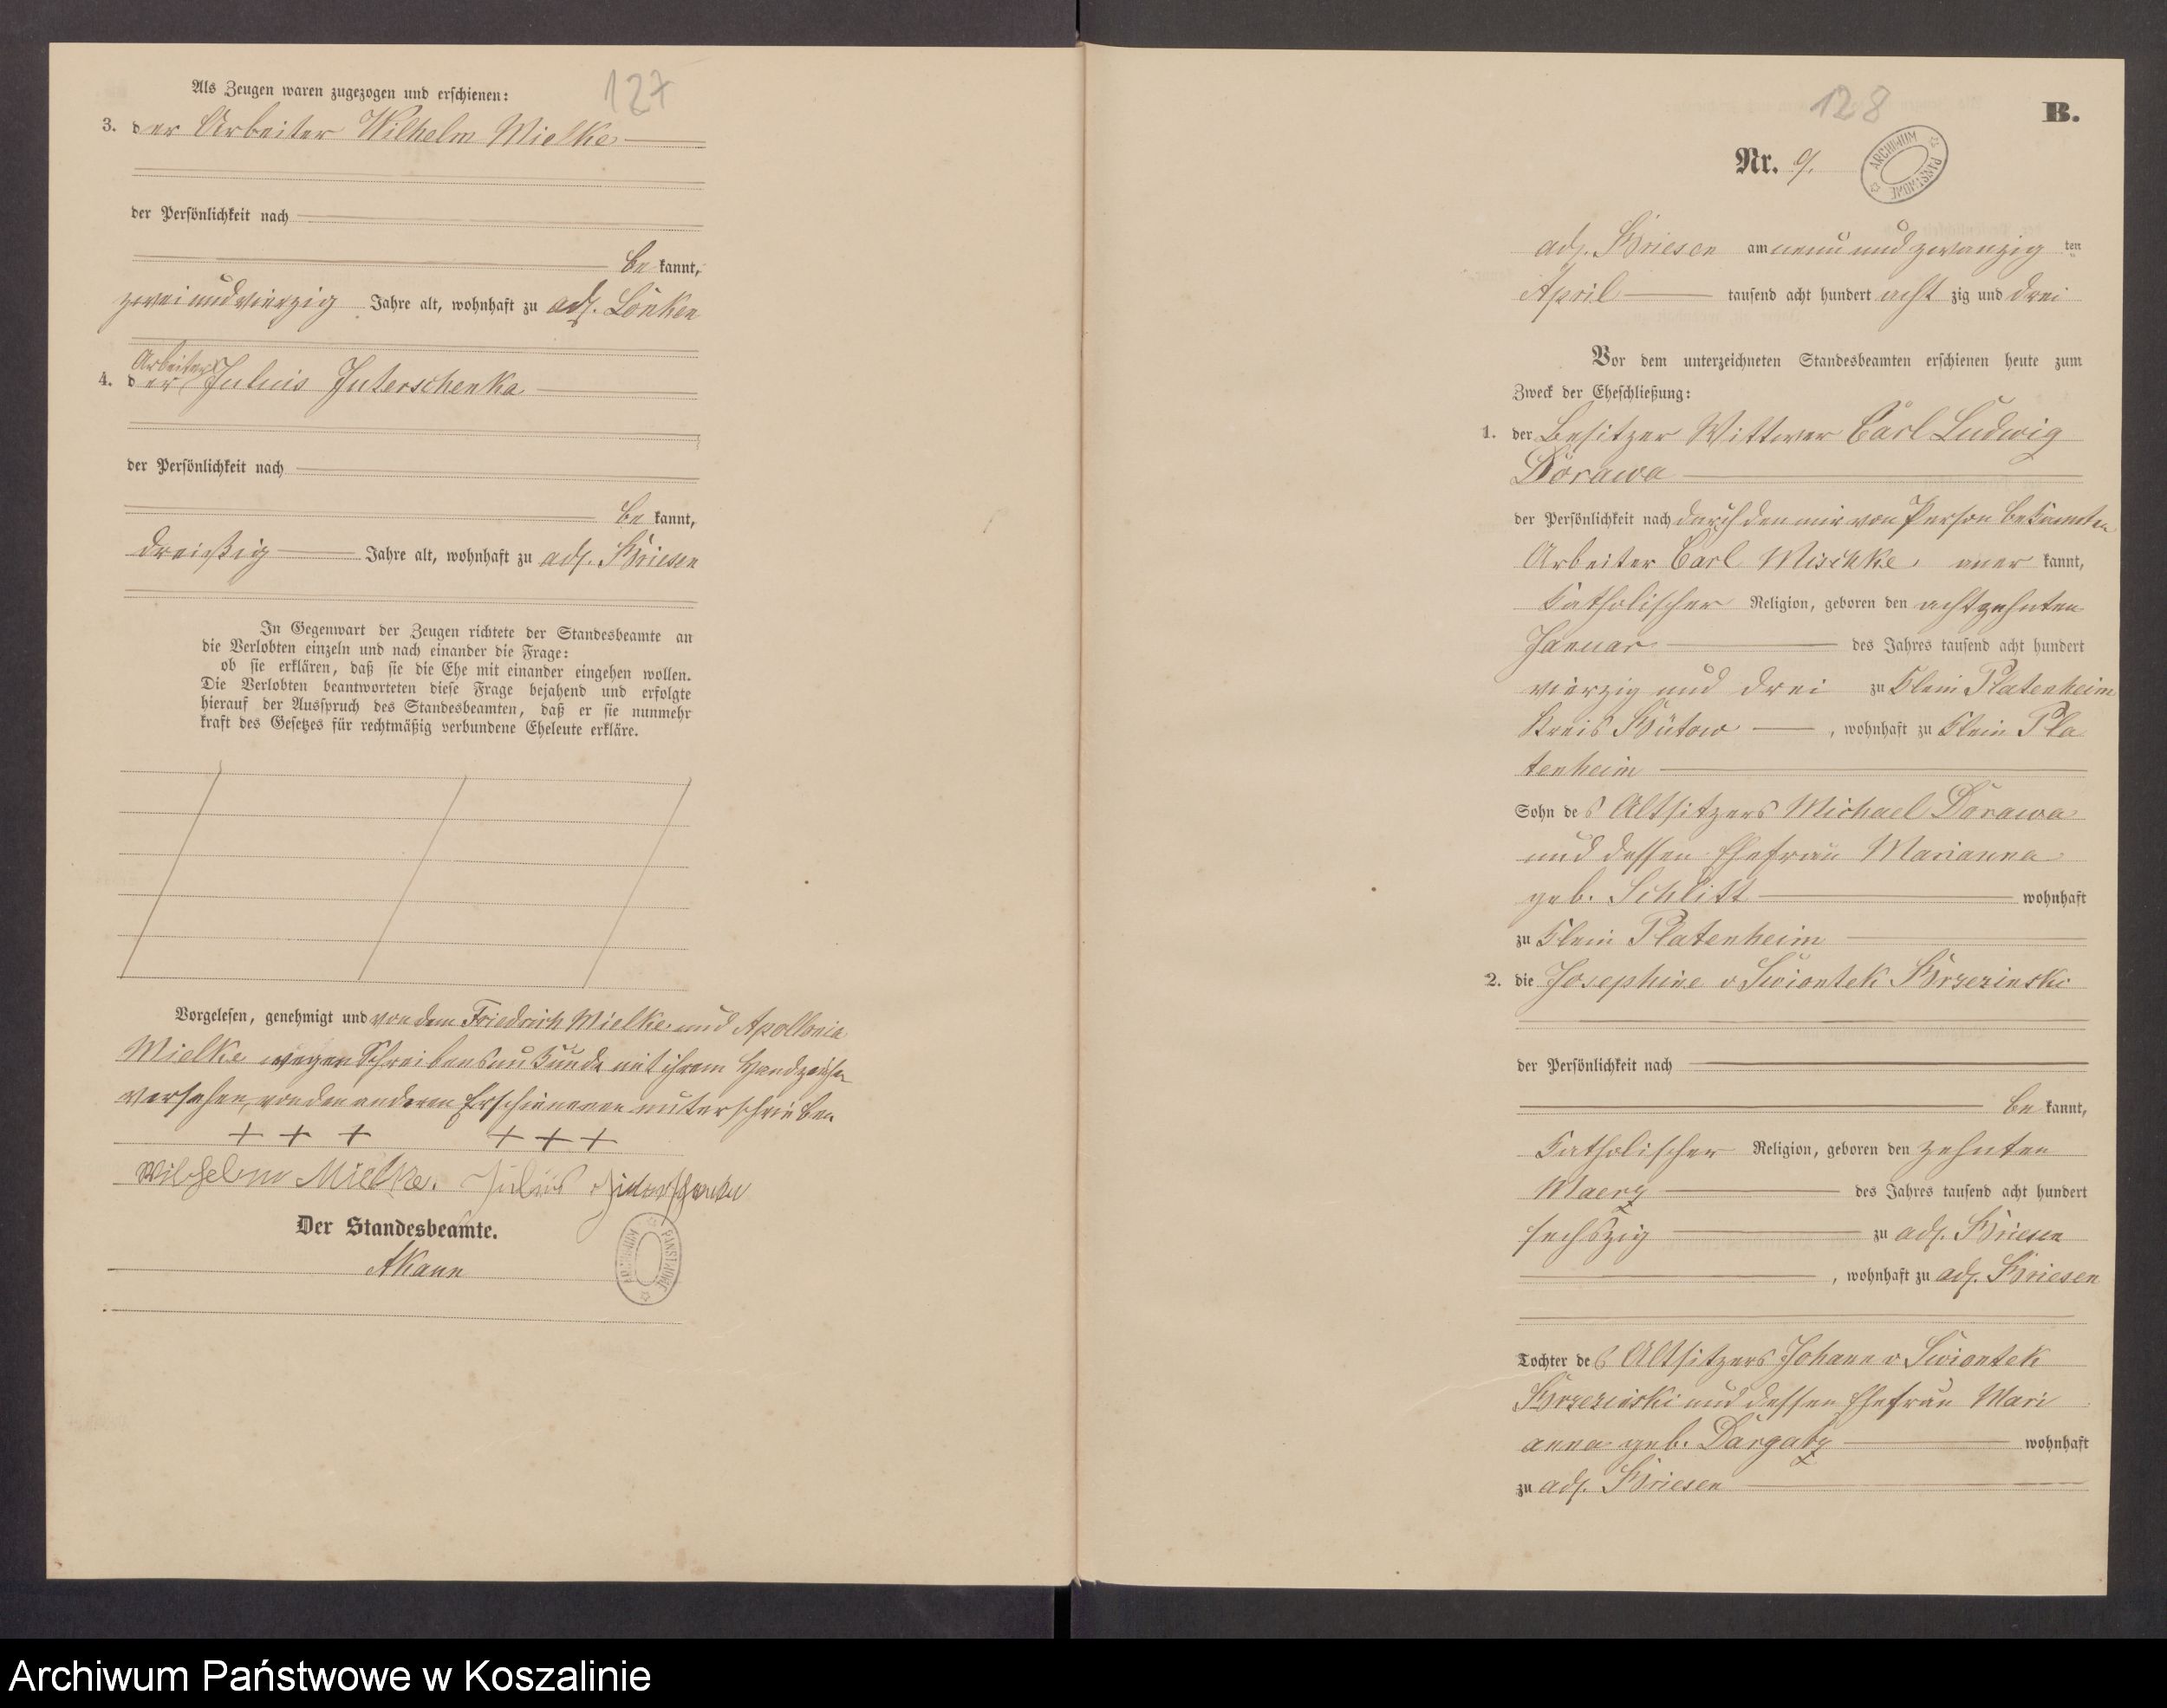 127
Als Zeugen waren zugezogen und erschienen:
3. der Arbeiter Wilhelm Mielke
der Persönlichkeit nach
be kannt,
zweiundvierzig Jahre alt, wohnhaft zu adl. Lonken
Arbeiter
4. der Julius Juterschenka
der Persönlichkeit nach
be kannt,
dreißig Jahre alt, wohnhaft zu adl. Briesen
In Gegenwart der Zeugen richtete der Standesbeamte an
die Verlobten einzeln und nach einander die Frage:
ob sie erklären, daß sie die Ehe mit einander eingehen wollen.
Die Verlobten beantworteten diese Frage bejahend und erfolgte
hierauf der Ausspruch des Standesbeamten, daß er sie nunmehr
kraft des Gesetzes für rechtmäßig verbundene Eheleute erkläre.
Vorgelesen, genehmigt und von dem Friedrich Mielke und Apollonia
Mielke wegen Schreibensunkunde mit ihrem Handzeichen
versehen, von den anderen Erschienenen unterschrieben.
+ + + + + +
Wilhelm Mielke. Julius Juterschenka
Der Standesbeamte.
AKann
ARCHIWUM PAŃSTWOWE
128
B.
Nr. 9.
ARCHIWUM PAŃSTWOWE
adl. Briesen am neun und zwanzig ten
April tausend acht hundert acht zig und drei
Vor dem unterzeichneten Standesbeamten erschienen heute zum
Zweck der Eheschließung:
1. der Besitzer Wittwer Carl Ludwig
Dorawa
der Persönlichkeit nach durch den mir von Person bekannten
Arbeiter Carl Mischke, aner kannt,
katholischer Religion, geboren den achtzehnten
Januar des Jahres tausend acht hundert
vierzig und drei zu Klein Platenheim
Kreis Bütow, wohnhaft zu Klein Pla
tenheim
Sohn des Altsitzers Michael Dorawa
und dessen Ehefrau Marianna
geb. Schlitt wohnhaft
zu Klein Platenheim
2. die Josephine v Swiontek Brzezinski
der Persönlichkeit nach
be kannt,
katholischer Religion, geboren den zehnten
Maerz des Jahres tausend acht hundert
sechszig zu adl. Briesen
, wohnhaft zu adl. Briesen
Tochter des Altsitzers Johann v Swiontek
Brzezinski und dessen Ehefrau Mari
anna geb. Dargatz wohnhaft
zu adl. Briesen
Archiwum Państwowe w Koszalinie